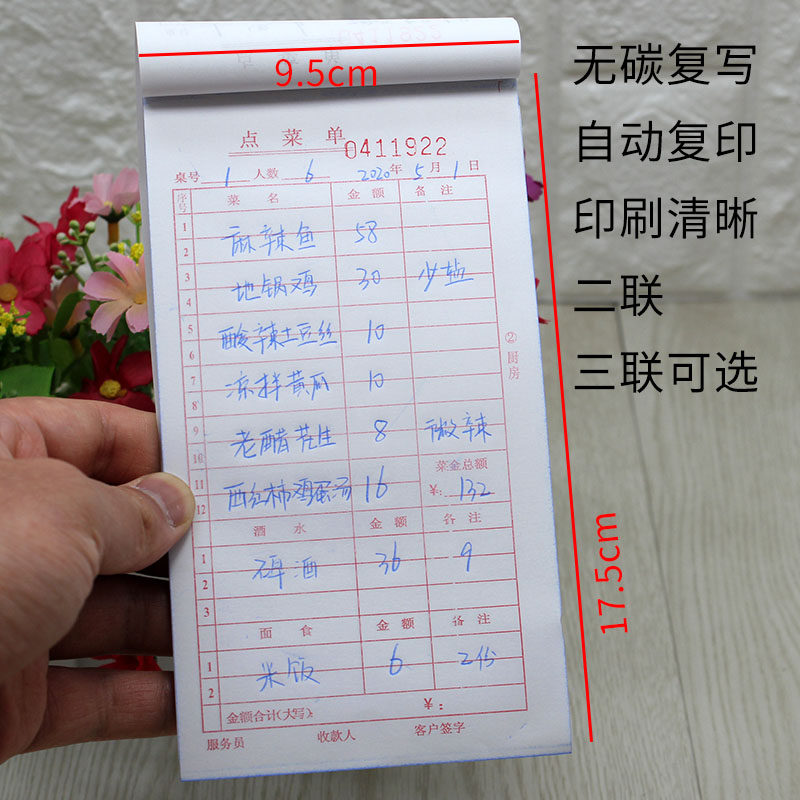 9.5cm
无碳复写
自动复印
印刷清晰
二联
三联可选
17.5cm
点菜单
0411922
桌号 1 人数 6 2020年 5月 1日
序号 菜名 金额 备注
1
2 麻辣鱼 58
3 地锅鸡 30 少盐
4
5 酸辣土豆丝 10
6
7 凉拌黄瓜 10
8
9 老醋花生 8 微辣
10
11 西红柿鸡蛋汤 16 菜金总额
12 ¥: 132
酒水 金额 备注
1 啤酒 36 9
2
3
面食 金额 备注
1 米饭 6 2份
2
金额合计(大写): ¥:
服务员 收款人 客户签字
②厨房